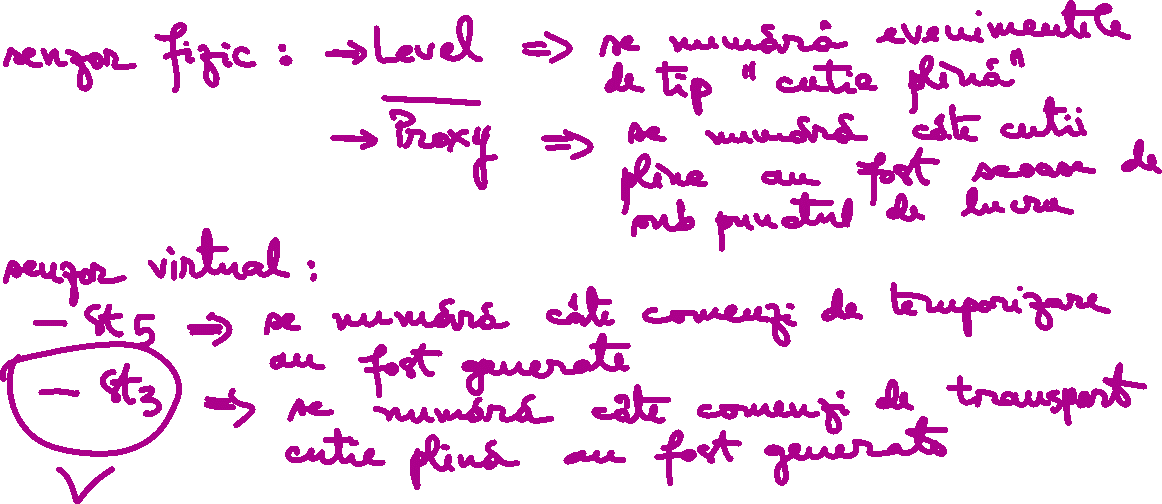 senzor fizic : → Level ⇒ se numără evenimentele
de tip "cutie plină"
→ P̅r̅o̅x̅y̅ ⇒ se numără câte cutii
pline au fost scoase de
sub punctul de lucru
senzor virtual :
- St5 ⇒ se numără câte comenzi de temporizare
au fost generate
- St3 ⇒ se numără câte comenzi de transport
cutie plină au fost generate